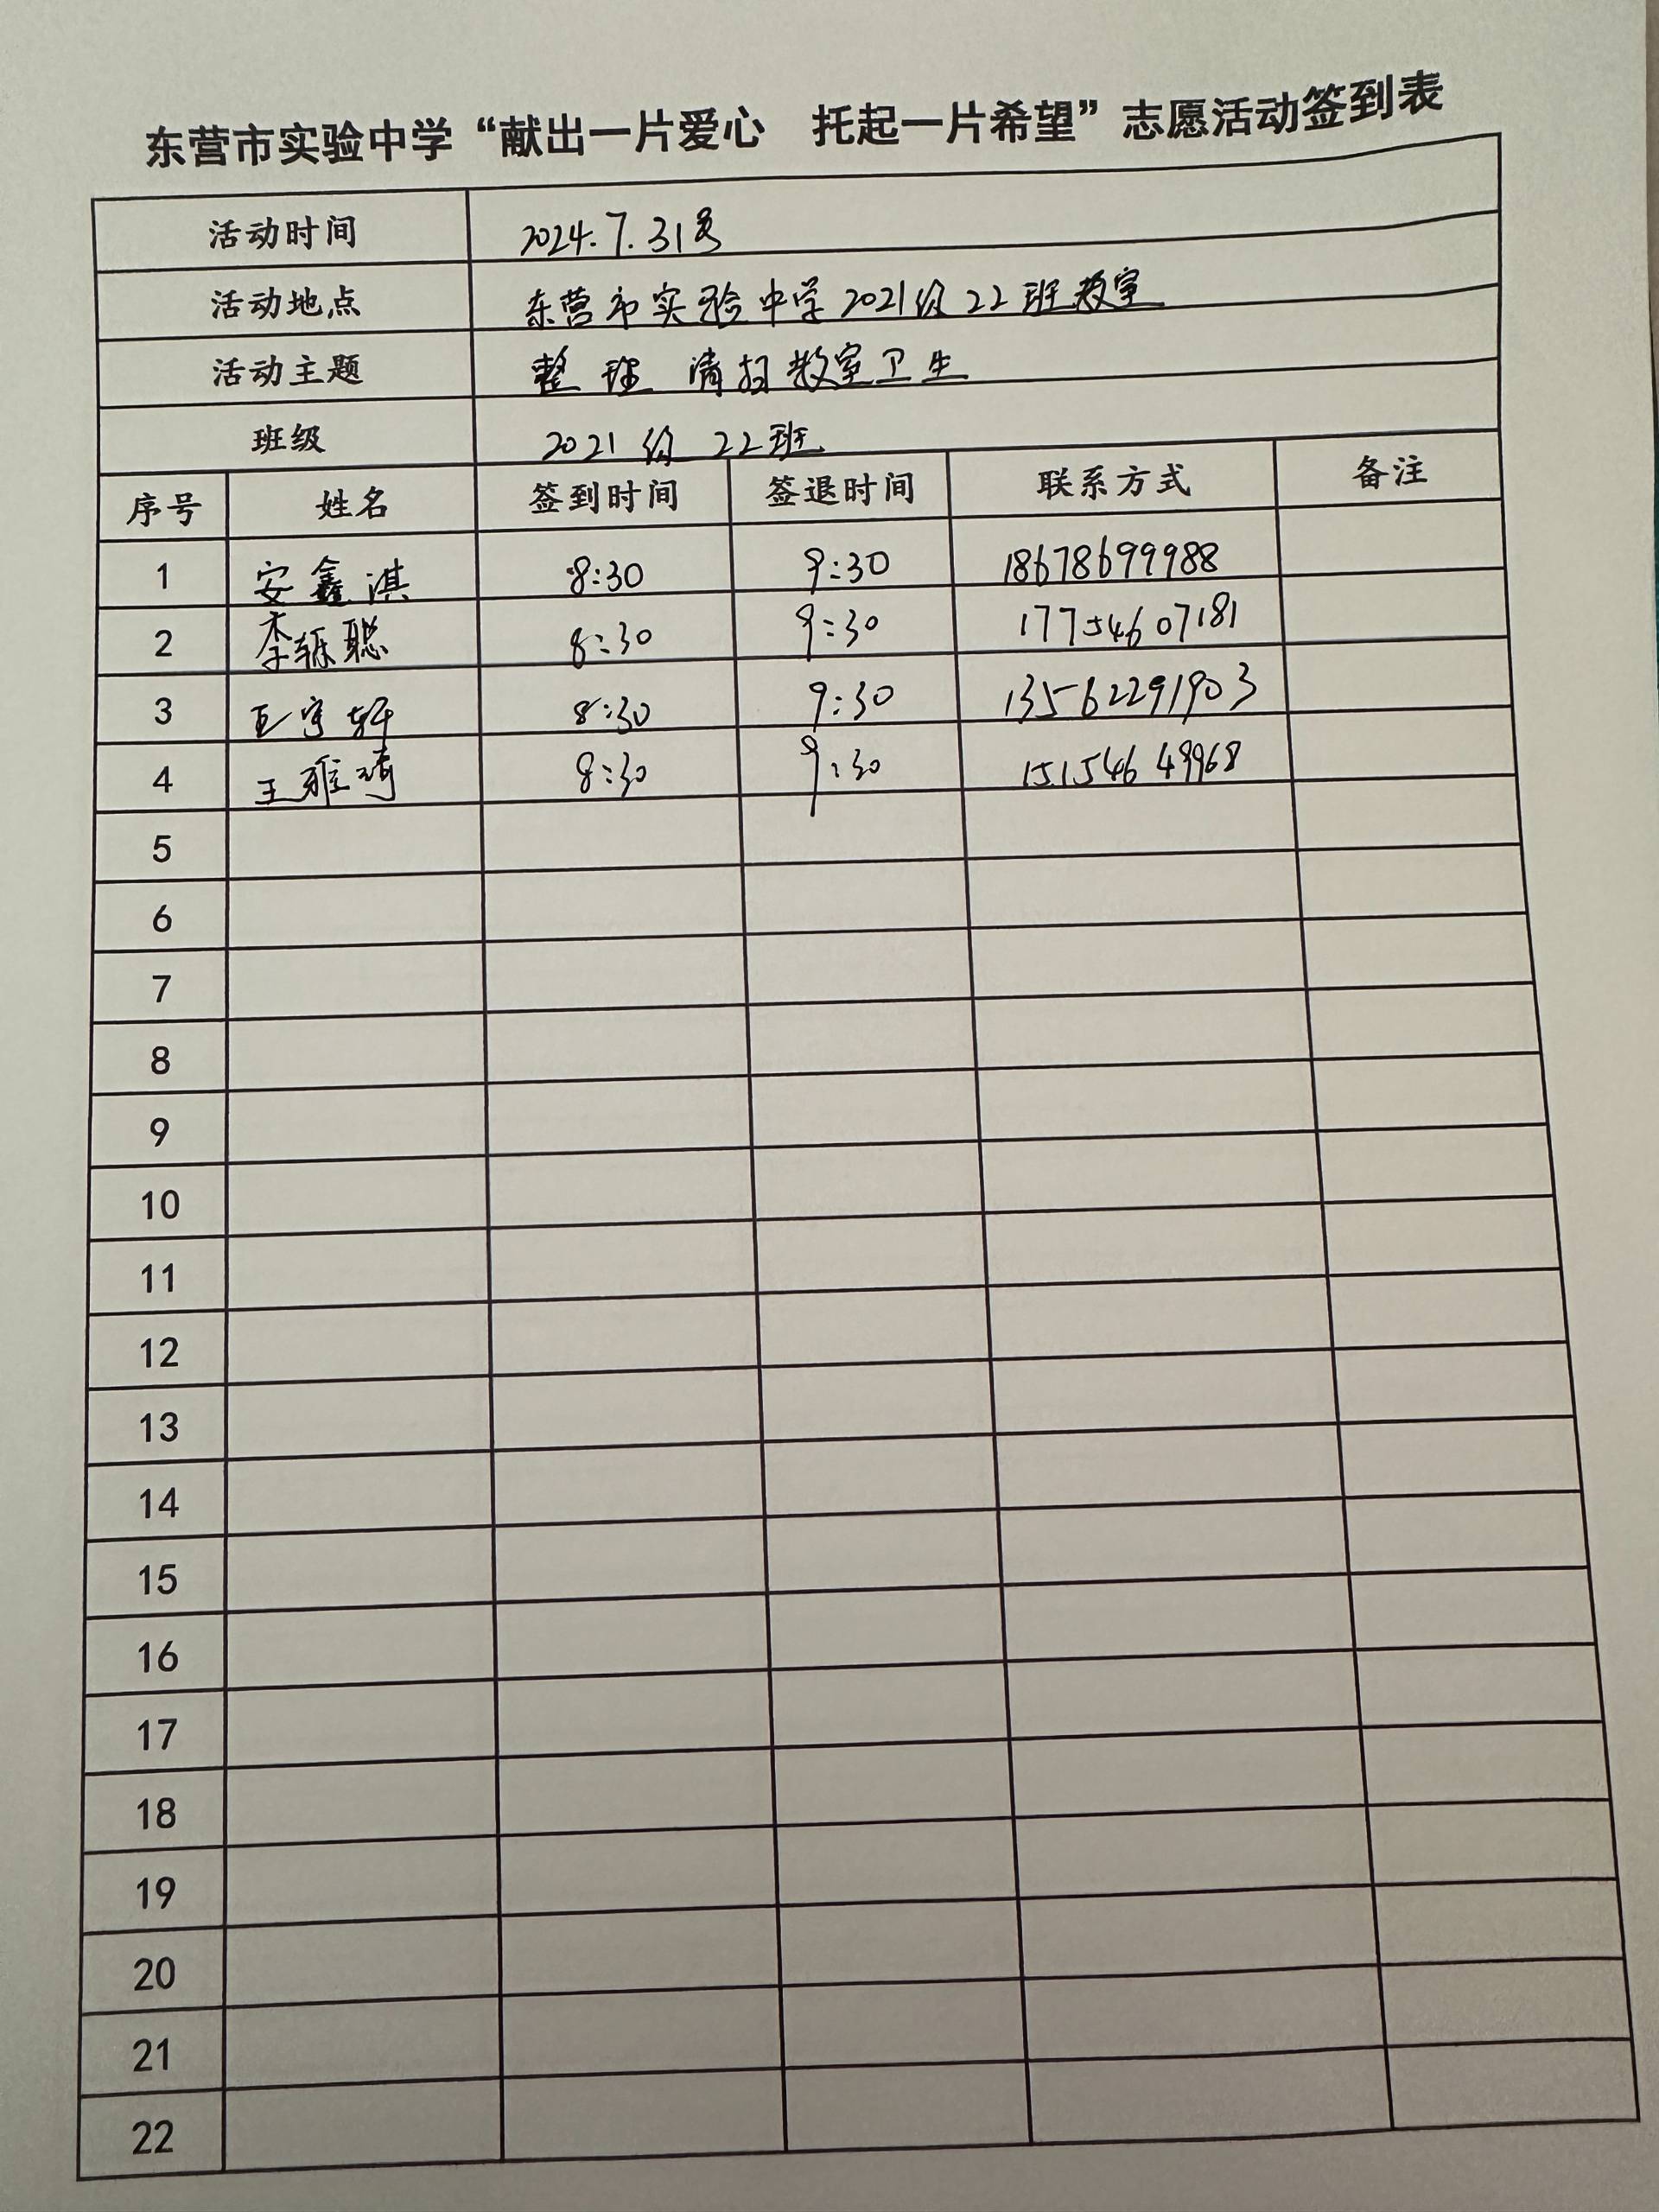 东营市实验中学“献出一片爱心 托起一片希望”志愿活动签到表
活动时间 2024.7.31号
活动地点 东营市实验中学2021级22班教室
活动主题 整理清扫教室卫生
班级 2021级22班
序号 姓名 签到时间 签退时间 联系方式 备注
1 安鑫淇 8:30 9:30 18678699988
2 李 聪 8:30 9:30 17754607181
3 王宇轩 8:30 9:30 13562291903
4 王雅琦 8:30 9:30 15154649968
5
6
7
8
9
10
11
12
13
14
15
16
17
18
19
20
21
22